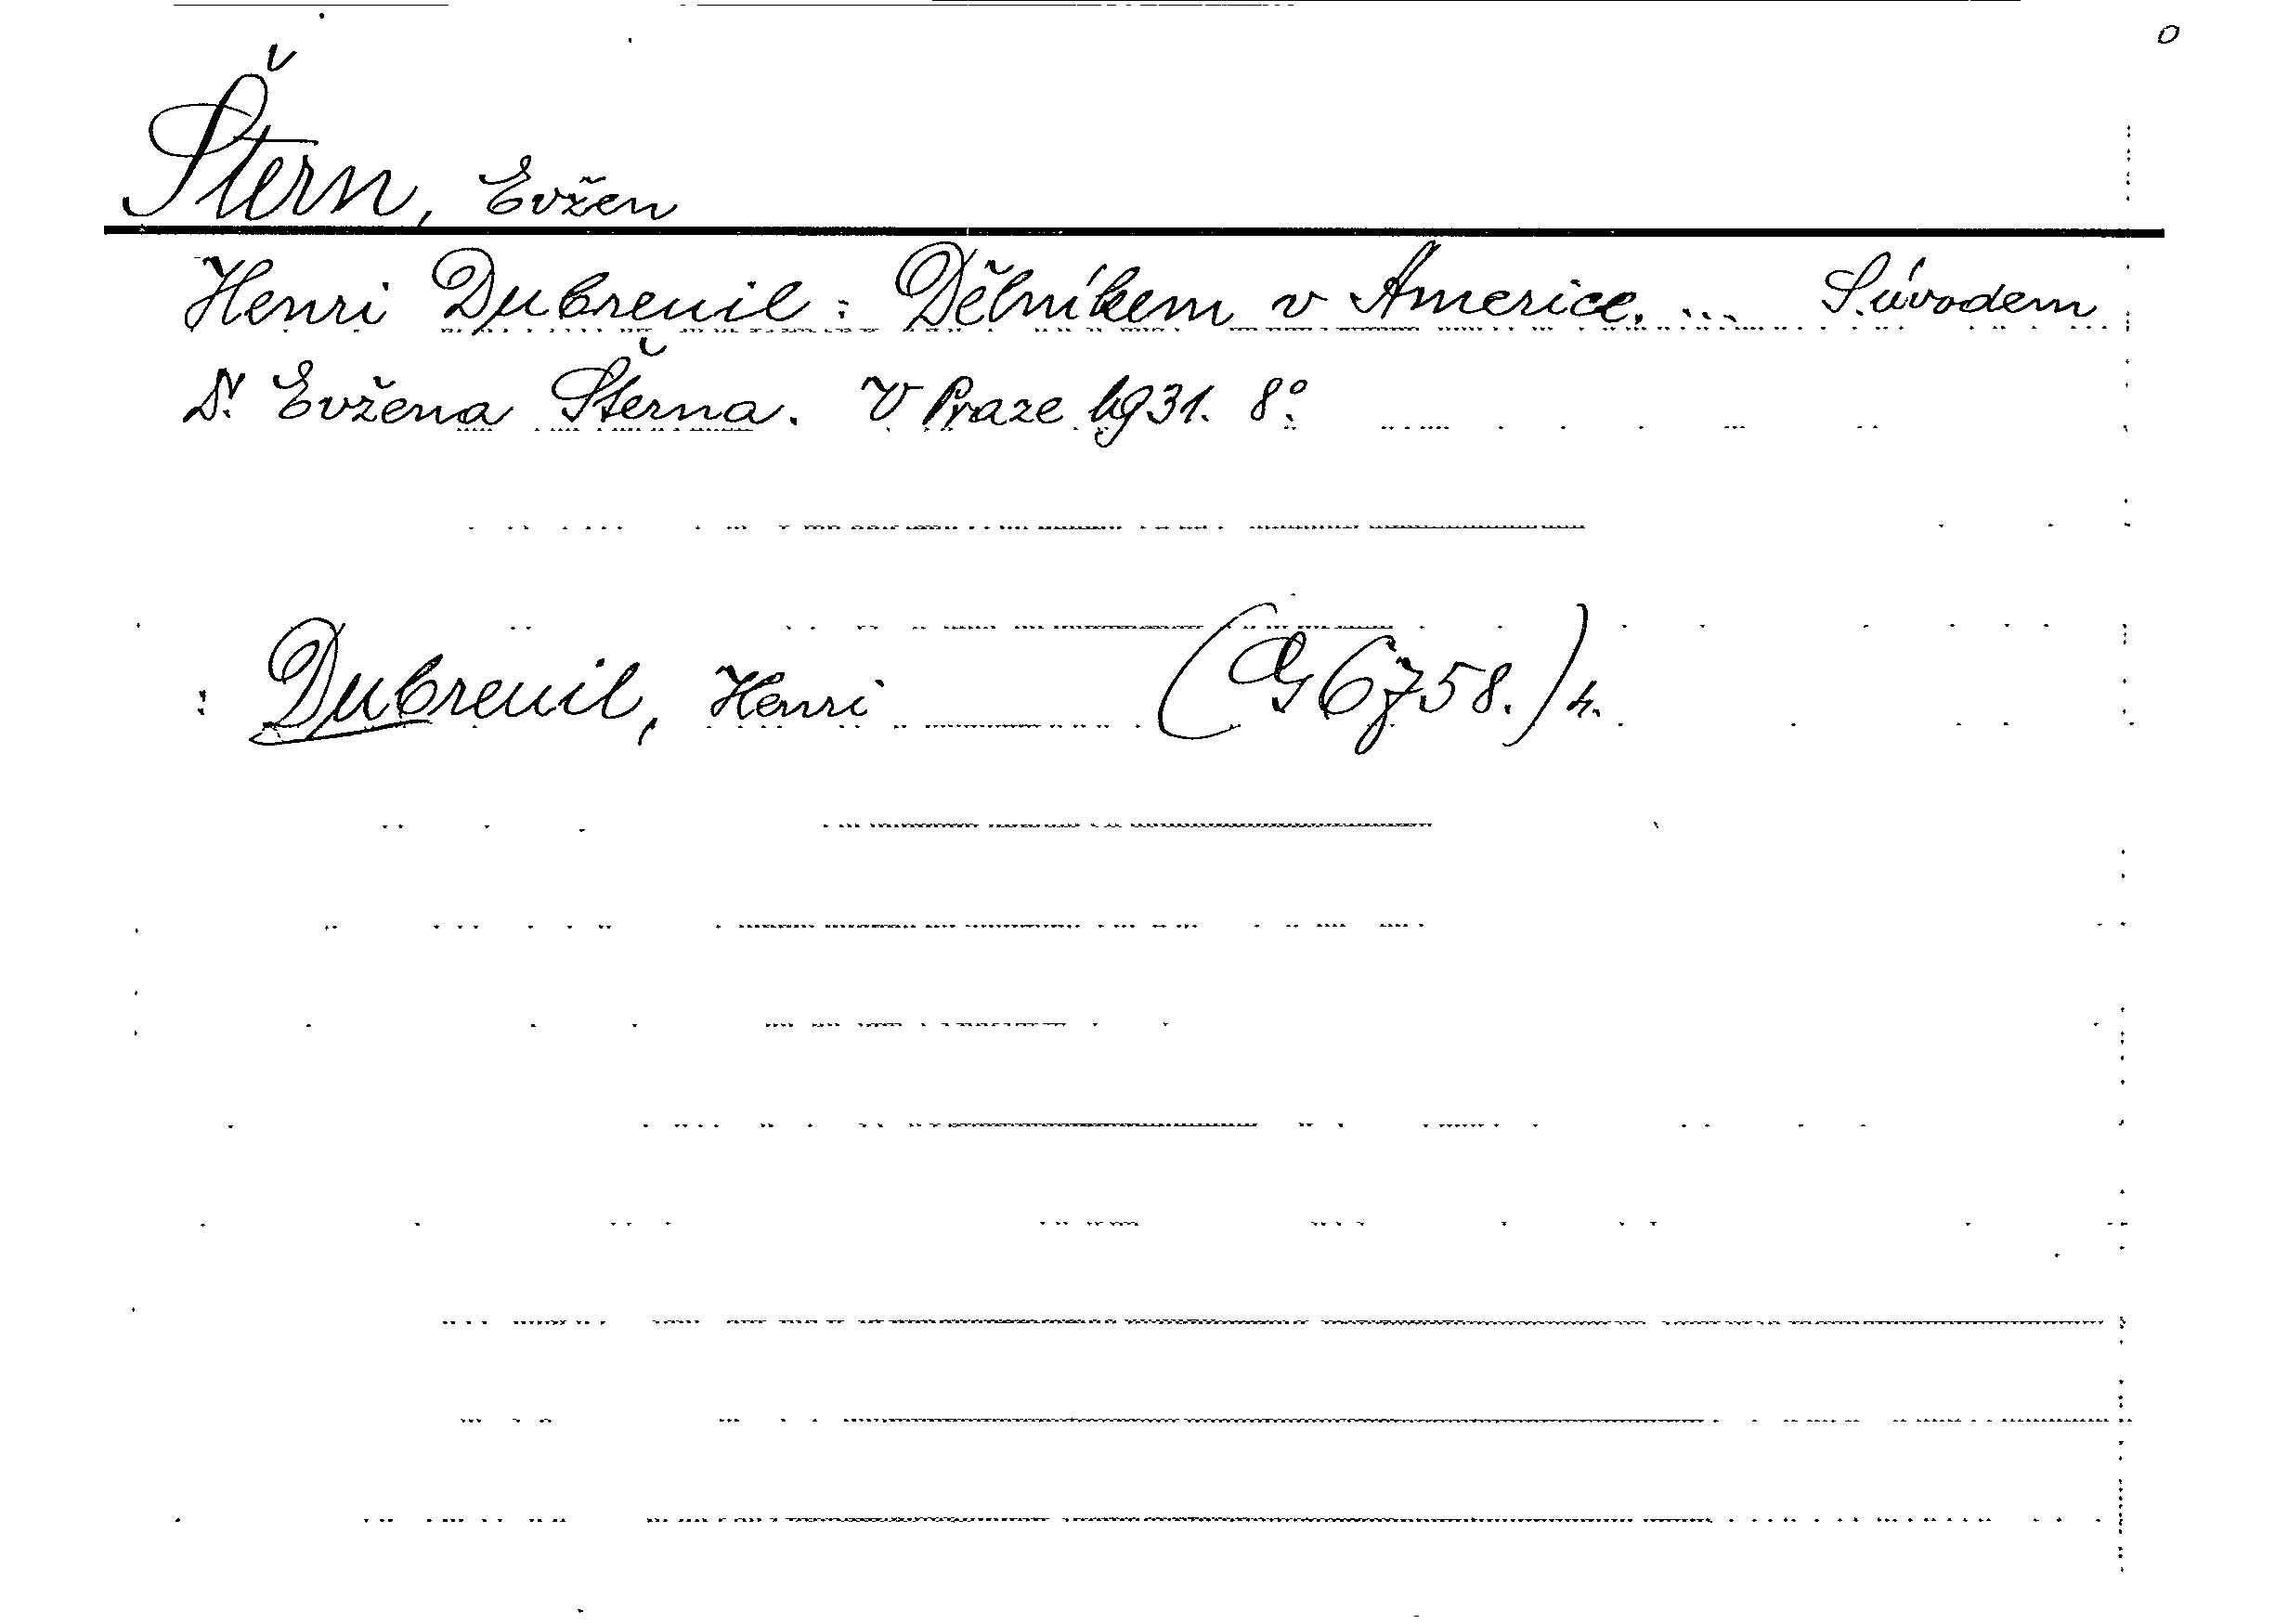 Štern, Evžen
Henri Dubreuil: Dělníkem v Americe. ... S úvodem
Dr. Evžena Šterna. V Praze 1931. 8°.
: Dubreuil, Henri (G 6758.) h.